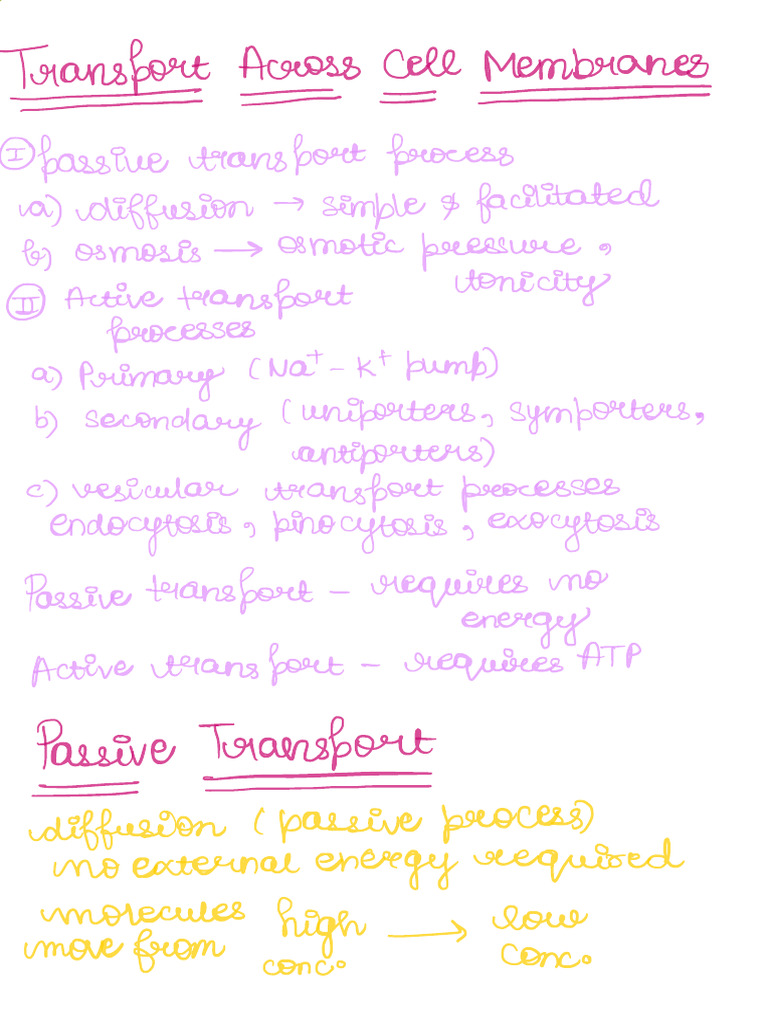 Transport Across Cell Membranes
I passive transport process
a) diffusion → simple & facilitated
b) osmosis → osmotic pressure,
tonicity
II Active transport
processes
a) Primary (Na⁺ - K⁺ pump)
b) secondary (uniporters, symporters,
antiporters)
c) vesicular transport processes
endocytosis, pinocytosis, exocytosis
Passive transport - requires no
energy
Active transport - requires ATP
Passive Transport
diffusion (passive process)
no external energy required
molecules high → low
move from conc. conc.